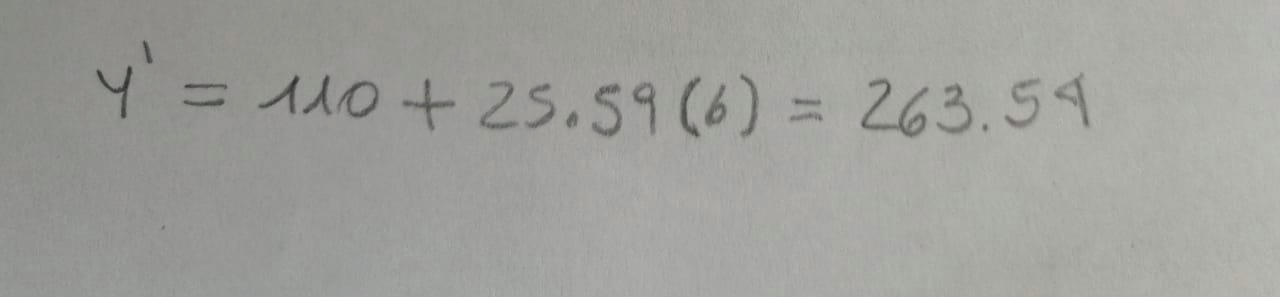 y' = 110 + 25.59(6) = 263.54